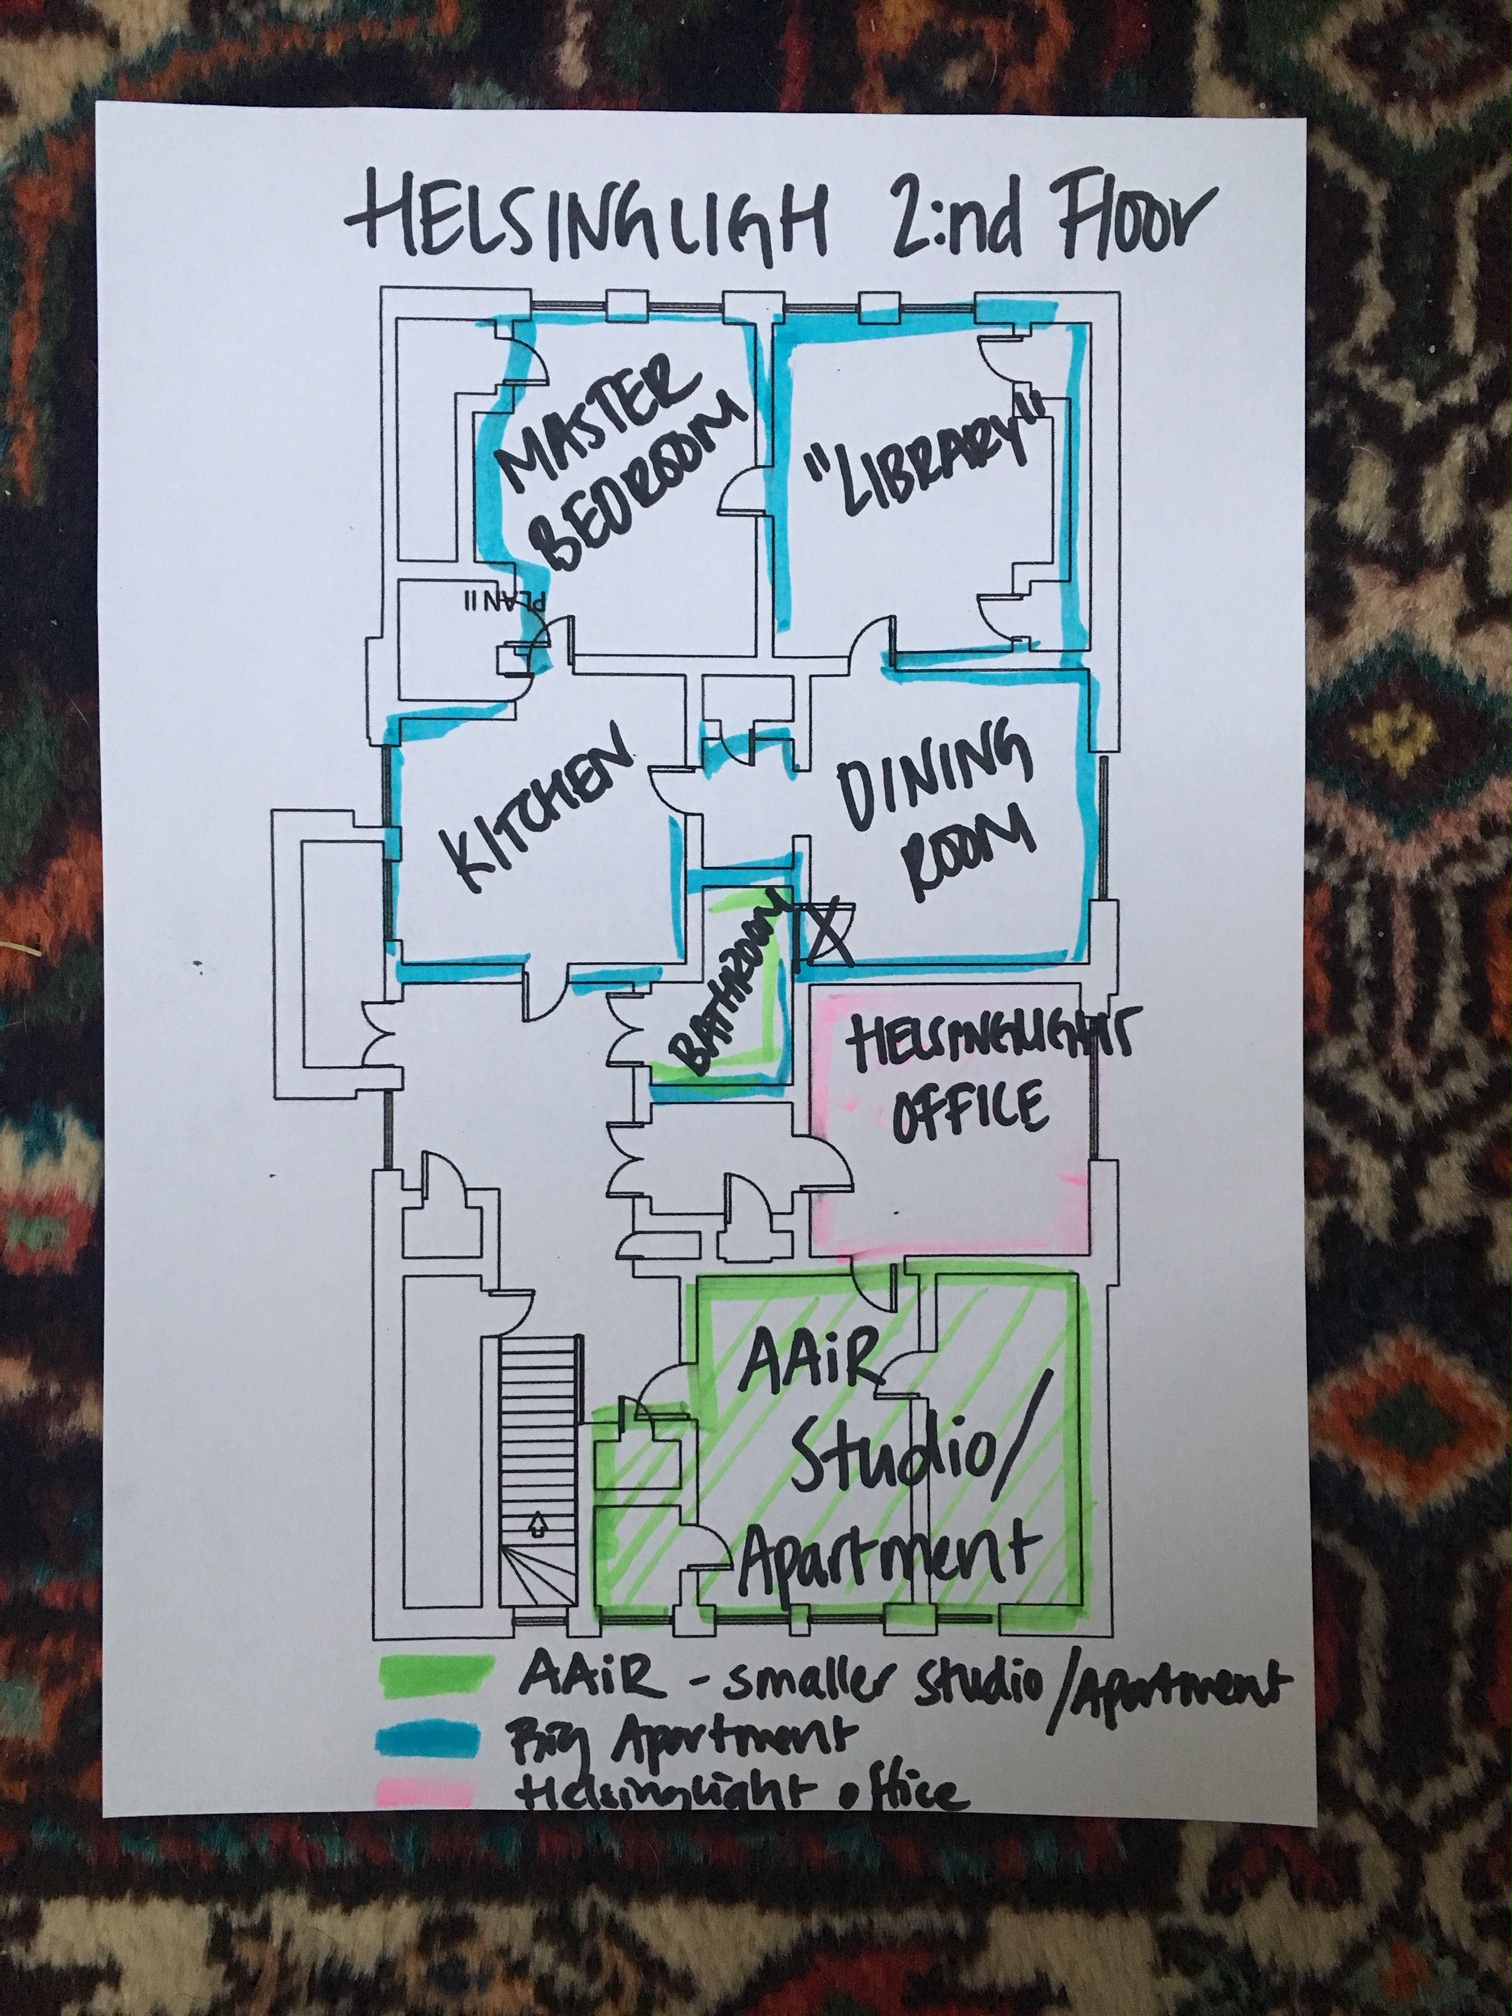 HELSINGLIGH 2:nd Floor
MASTER
BEDROOM
"LIBRARY"
PLAN II
KITCHEN
DINING
ROOM
X
BATHROOM
HELSINGLIGHTS
OFFICE
AAiR
Studio/
Apartment
AAiR - smaller studio/Apartment
Big Apartment
Helsinglight office